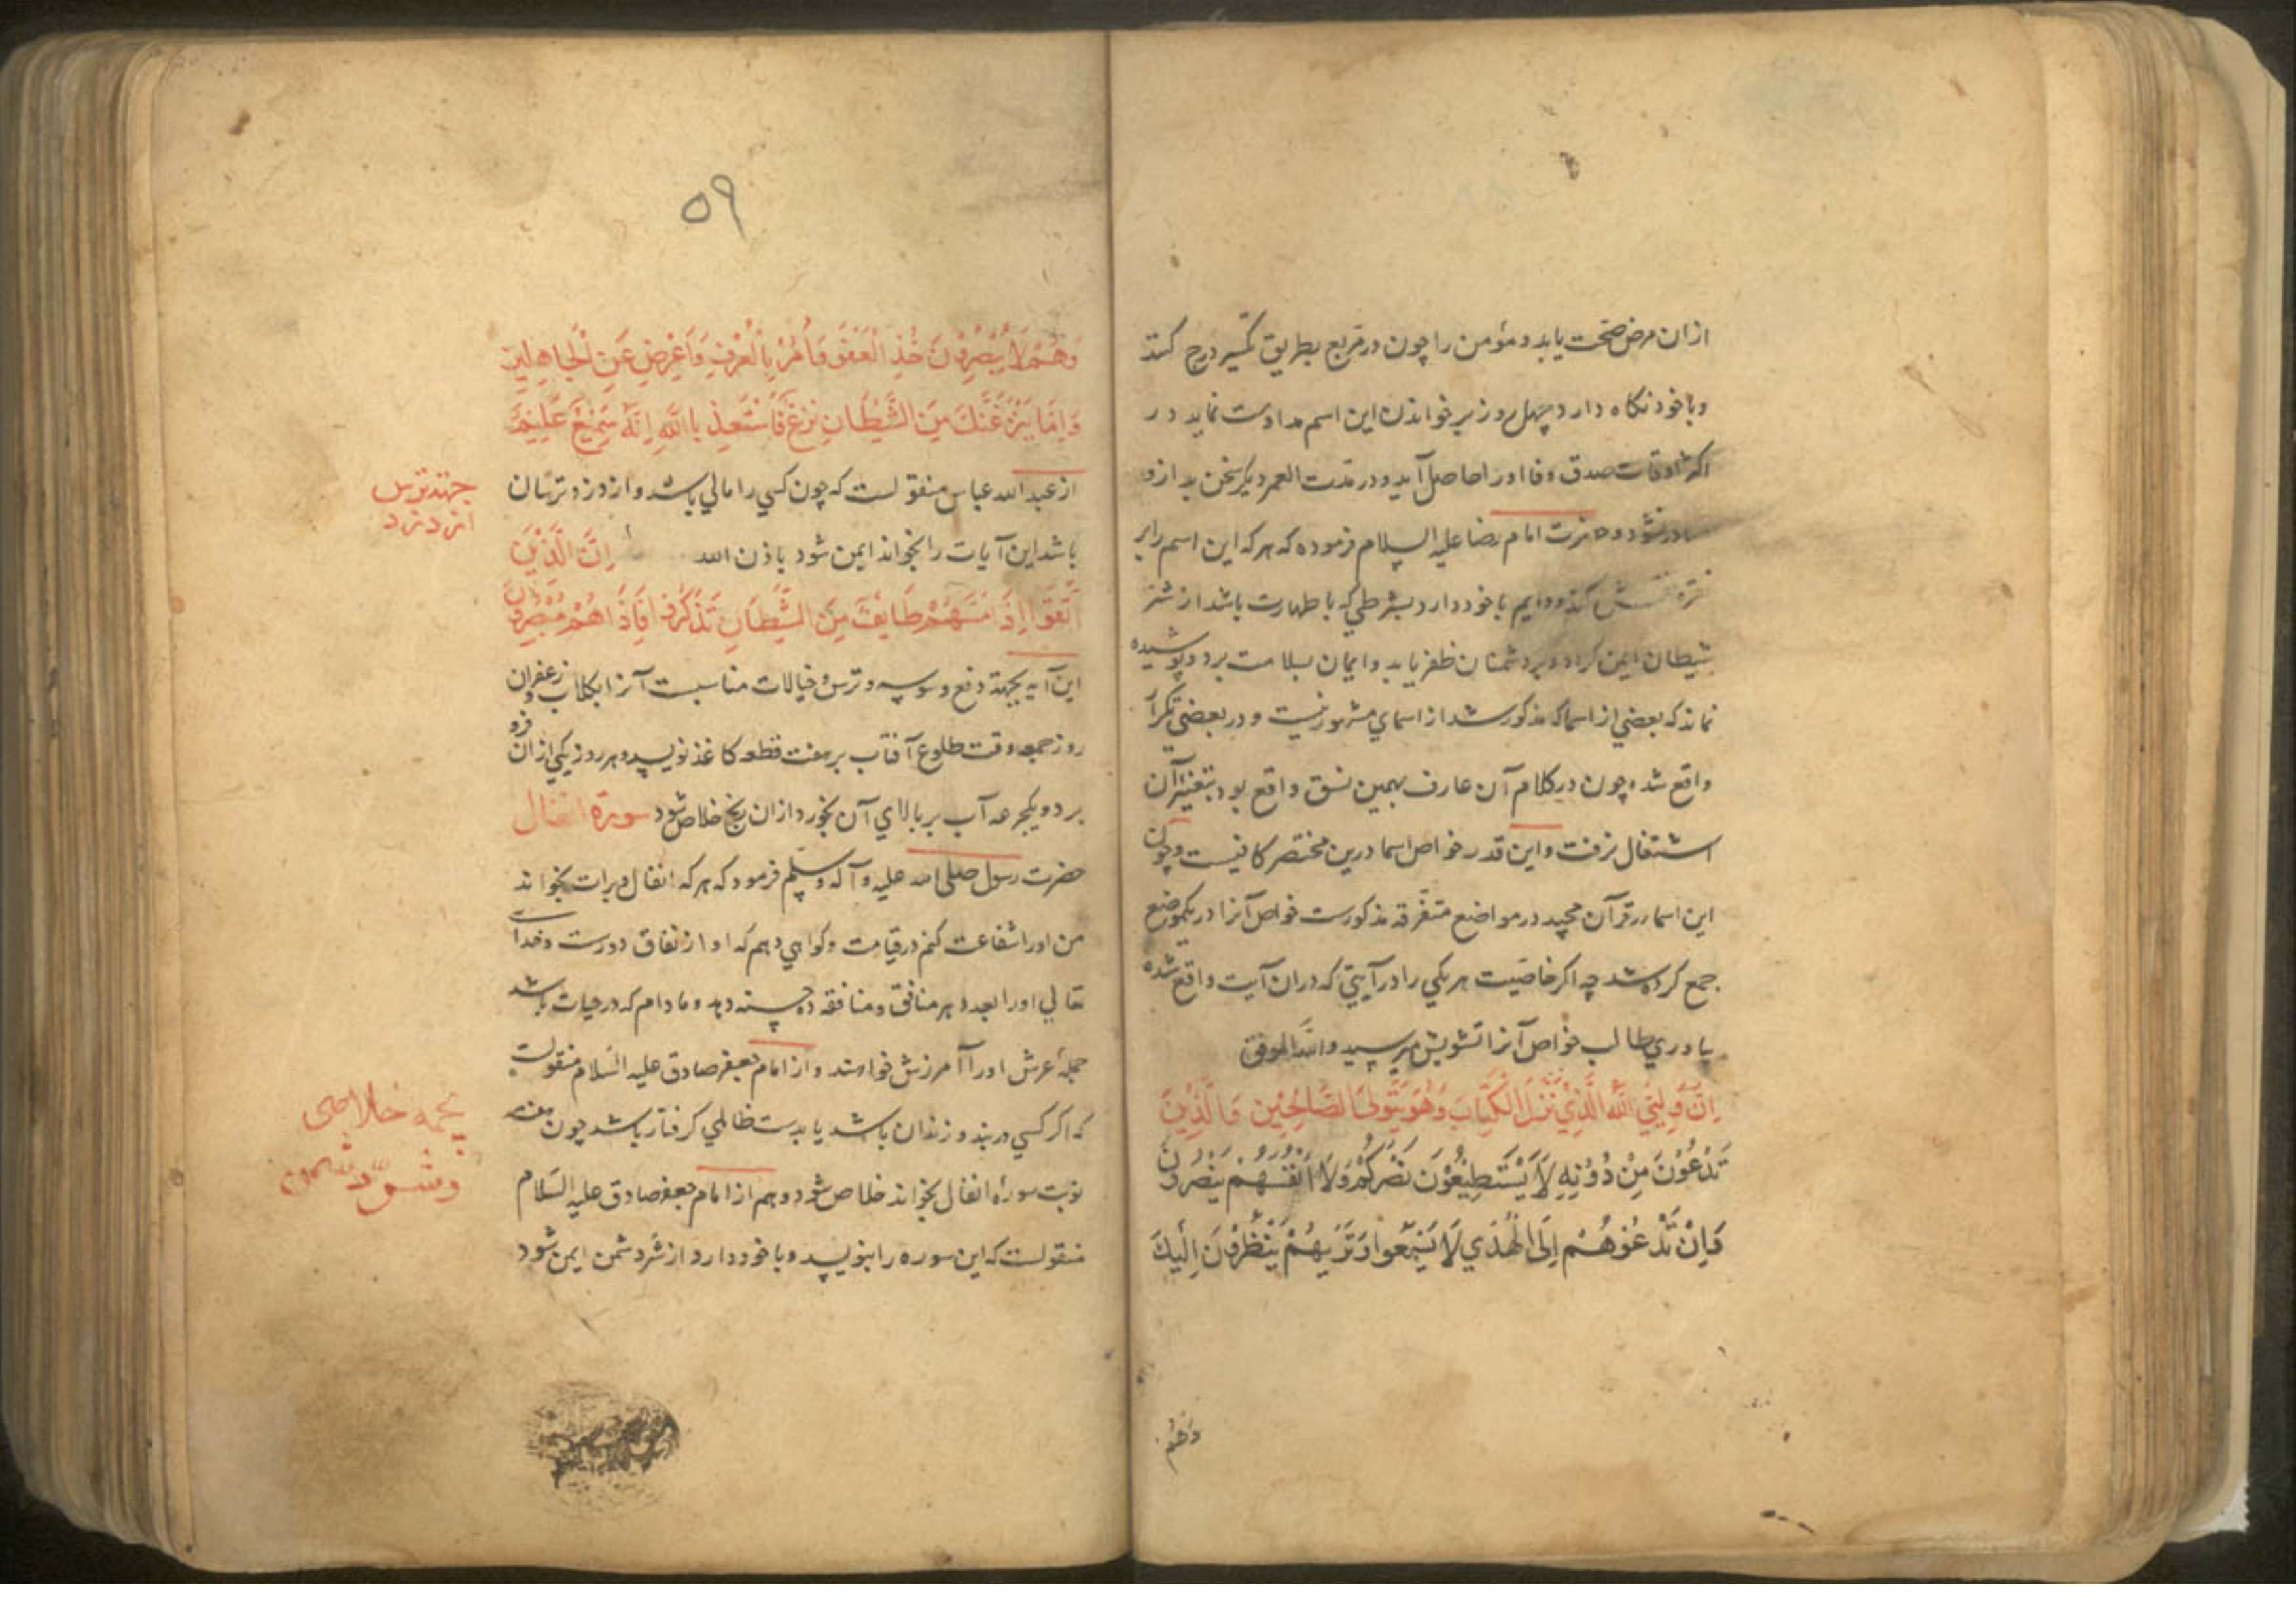 ازان مرض صحّت یابد و مؤمن را چون در مربع بطریق تکسیر درج کنند
و با خود نکاه دارد چهل روز بر خواندن این اسم مداومت نماید در
اکثر اوقات صدق و فا اورا حاصل آید و در مدت العمر دیکر سخن بد ازو
صادر نشود و حضرت امام رضا علیه السلام فرموده که هر که این اسم را بر
نقره نقش کند و دایم با خود دارد بشرطی که با طهارت باشد از شر
شیطان ایمن کردد و بر دشمنان ظفر یابد و ایمان بسلامت برد و پوشیده
نماند که بعضي از اسما که مذکور شد از اسماي مشهور نیست و در بعضي تکرار
واقع شده چون در کلام آن عارف بهمین نسق واقع بود بتغییر آن
اشتغال نرفت و این قدر خواص اسما درین مختصر کافیست و چون
این اسما در قرآن مجید در مواضع متفرقه مذکورست خواص آنرا در یکموضع
جمع کرده شد چه اکر خاصیت هر یکي را در آیتي که دران آیت واقع شده
یاد دري طالب خواص آنرا تشویش میرسید والله الموفق
اِنَّ وَلِيّيَ اللَّهُ الَّذِي نَزَّلَ الْكِتَابَ وَهُوَ يَتَوَلَّى الصَّالِحِينَ وَالَّذِينَ
تَدْعُوْنَ مِنْ دُوْنِهِ لَا يَسْتَطِيْعُوْنَ نَصْرَكُمْ وَلَا اَنْفُسَهُمْ يَنْصُرُوْنَ
وَاِنْ تَدْعُوْهُمْ اِلَى الْهُدَي لَا يَتَّبِعُوا وَتَرَيهُمْ يَنْظُرُوْنَ اِلَيْكَ
وَهُم
٥٩
وَهُمْ لَا يُبْصِرُوْنَ خُذِ الْعَفْوَ وَأْمُرْ بِالْعُرْفِ وَاَعْرِضْ عَنِ الْجَاهِلِينَ
وَاِمَّا يَنْزَغَنَّكَ مِنَ الشَّيْطَانِ نَزْغٌ فَاسْتَعِذْ بِاللَّهِ اِنَّهُ سَمِيْعٌ عَلِيْمٌ
از عبدالله عباس منقولست که چون کسي را مالي باشد و از دزد ترسان
جهته ترس
از دزد
باشد این آیات را بخواند ایمن شود باذن الله اِنَّ الَّذِيْنَ
اتَّقَوْا اِذَا مَسَّهُمْ طَايِفٌ مِنَ الشَّيْطَانِ تَذَكَّرُوْا فَاِذَا هُمْ مُبْصِرُوْنَ
این آیه بجهة دفع وسوسه و ترس و خیالات مناسبست آنرا بکلاب و زعفران
روز جمعه وقت طلوع آفتاب بر هفت قطعه کاغذ نویسد و هر روز یکي ازان فرو
برد و یکجرعه آب بر بالاي آن بخورد ازان رنج خلاص شود سورة انفال
حضرت رسول صلی الله علیه و آله وسلّم فرمود که هر که انفال و برات بخواند
من اورا شفاعت کنم در قیامت و کواهي دهم که او از نفاق دورست و خداي
تعالي اورا بعدد هر منافق و منافقه ده حسنه دهد و مادام که در حیات باشد
حملهٔ عرش اورا آمرزش خواهند و از امام جعفر صادق علیه السّلام منقولست
که اکر کسي در بند و زندان باشد یا بدست ظالمي کرفتار باشد چون هفت
بجهة خلاصی
و شرّ دشمن
نوبت سورهٔ انفال بخواند خلاص شود و هم از امام جعفر صادق علیه السّلام
منقولست که این سوره را بنویسد و با خود دارد از شر دشمن ایمن شود